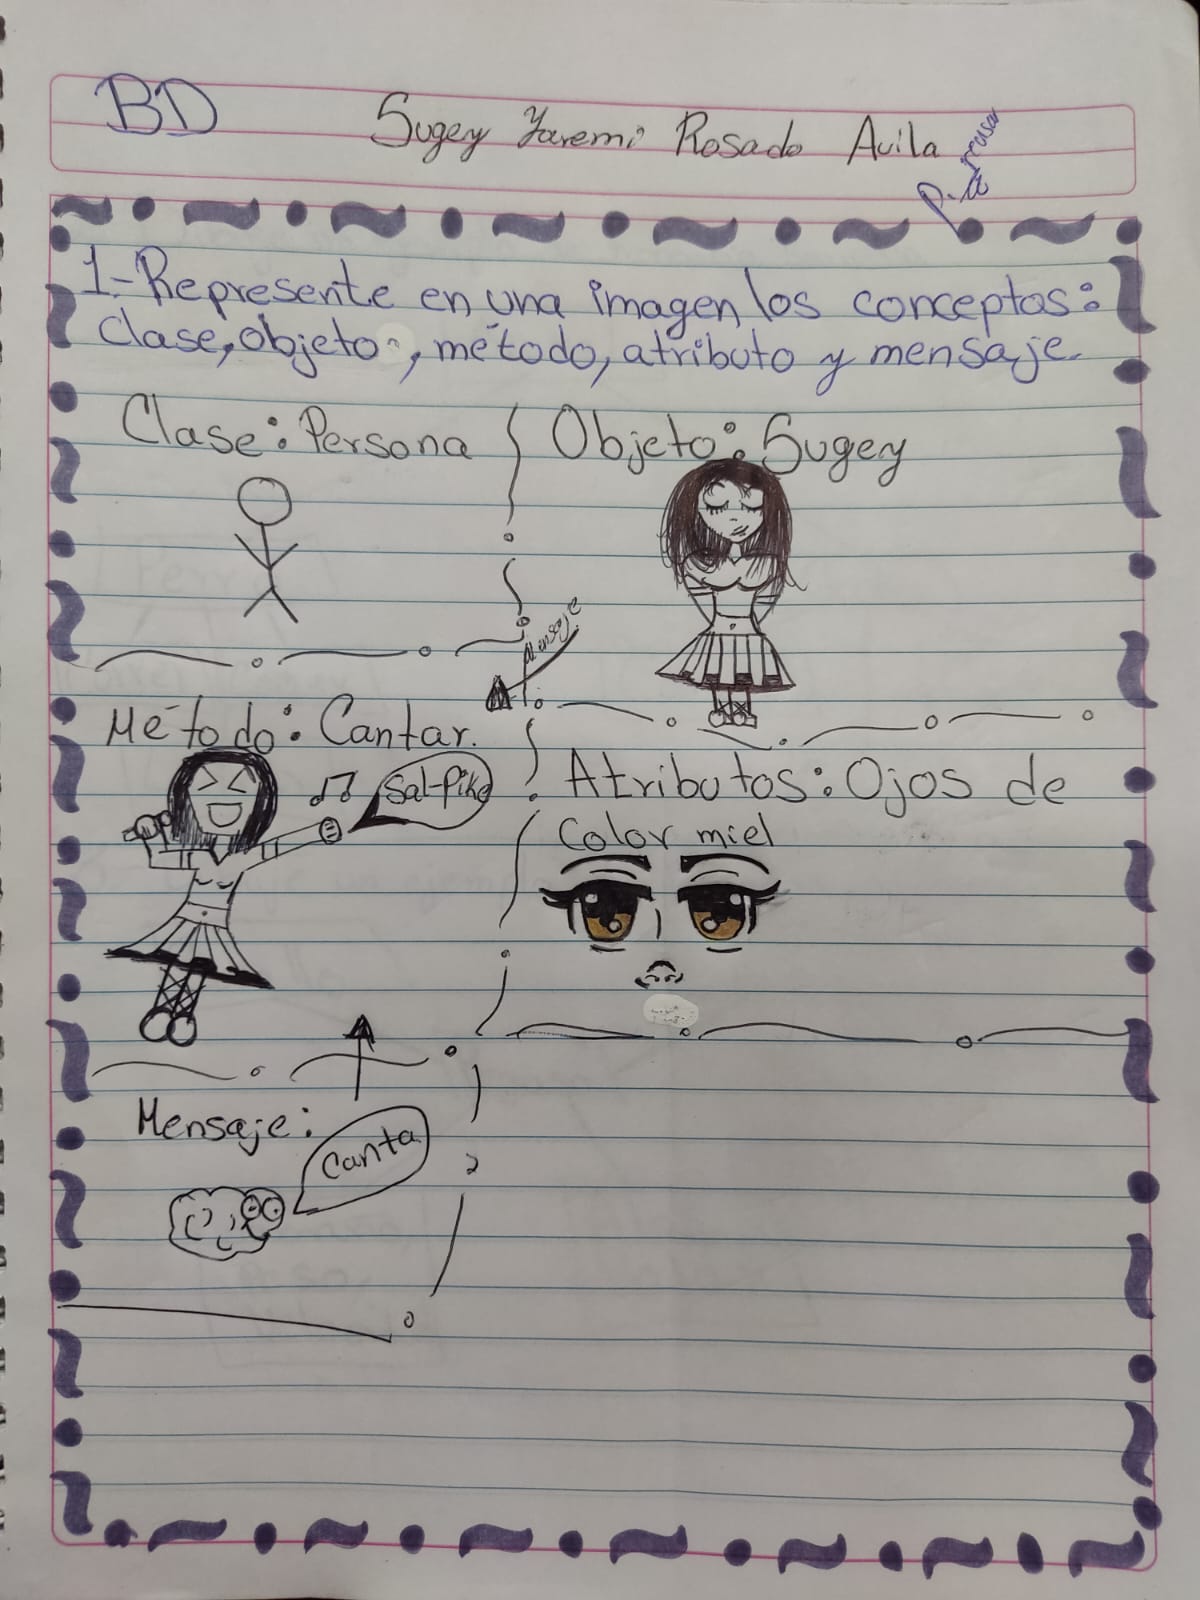 BD
Sugey Yaremi Rosado Avila
1-Represente en una imagen los conceptos:
Clase, objeto, método, atributo y mensaje.
Clase: Persona
Objeto: Sugey
Mensaje
Método: Cantar.
Sal-Pike
Atributos: Ojos de
Color miel
Mensaje:
Canta